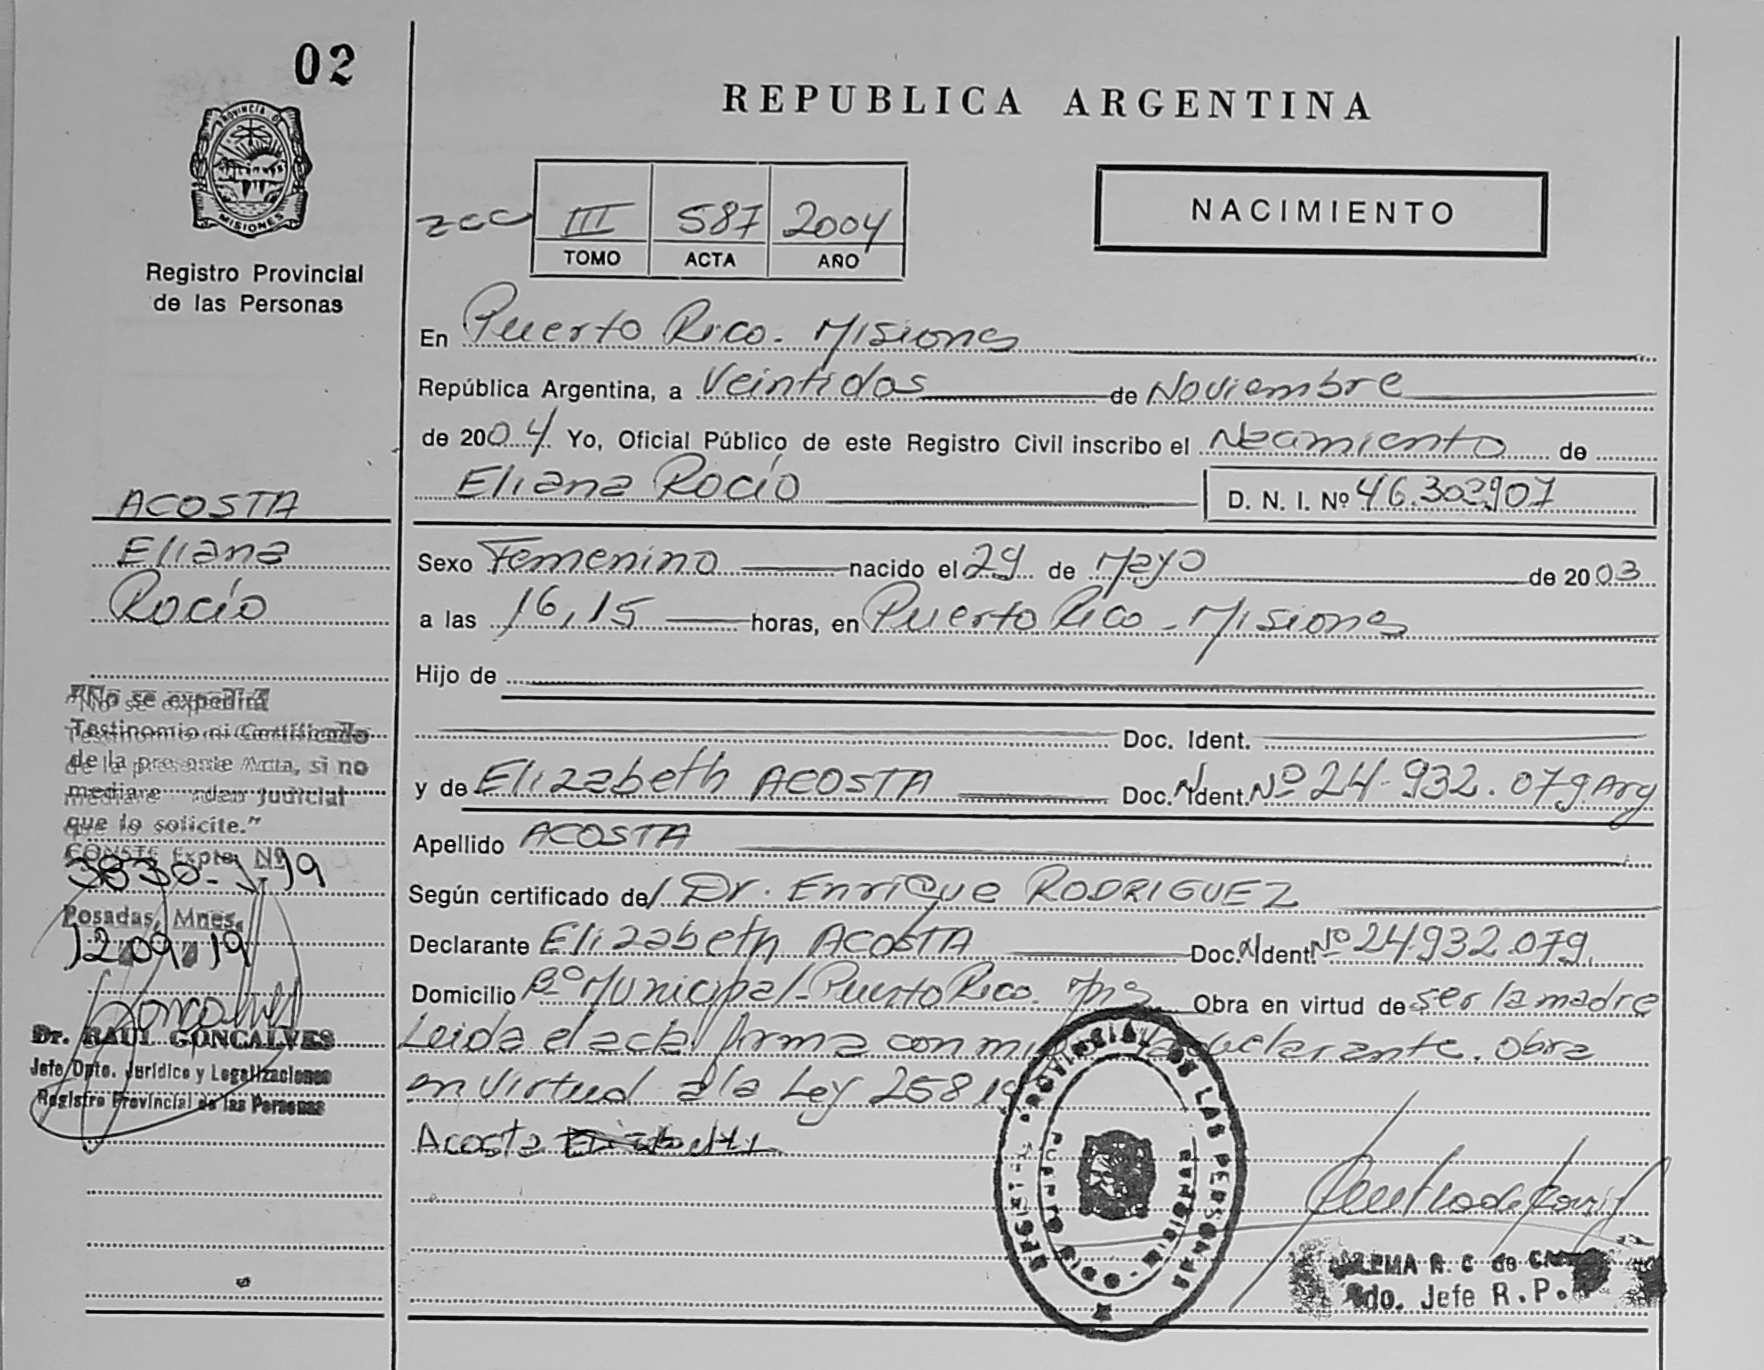 02
PROVINCIA DE
MISIONES
Registro Provincial
de las Personas
REPUBLICA ARGENTINA
III 587 2004
TOMO ACTA AÑO
NACIMIENTO
En Puerto Rico - Misiones
República Argentina, a Veintidos de Noviembre
de 2004 Yo, Oficial Público de este Registro Civil inscribo el Nacimiento de
Eliana Rocío D. N. I. Nº 46.302907
Sexo Femenino nacido el 29 de Mayo de 2003
a las 16,15 horas, en Puerto Rico - Misiones
Hijo de
Doc. Ident.
y de Elizabeth ACOSTA Doc. Ident. Nº 24.932.079 Arg
Apellido ACOSTA
Según certificado de/ Dr. Enrique RODRIGUEZ
Declarante Elizabeth ACOSTA Doc. Ident. Nº 24932.079
Domicilio Bº Municipal - Puerto Rico. Mns Obra en virtud de ser la madre
Leida el acta firma conmi declarante. Obra
en virtud a la Ley 25819
Acosta Elizabeth
ACOSTA
Eliana
Rocío
"No se expedirá
Testimonio ni Certificado
de la presente Acta, si no
mediare orden judicial
que lo solicite."
CONSTE Expte. Nº
3836- 19
Posadas, Mnes,
12 09 19
Dr. RAUL GONCALVES
Jefe Dpto. Jurídico y Legalizaciones
Registro Provincial de las Personas
REGISTRO PROVINCIAL DE LAS PERSONAS
PUERTO RICO - MISIONES
R. C de
Jefe R.P.